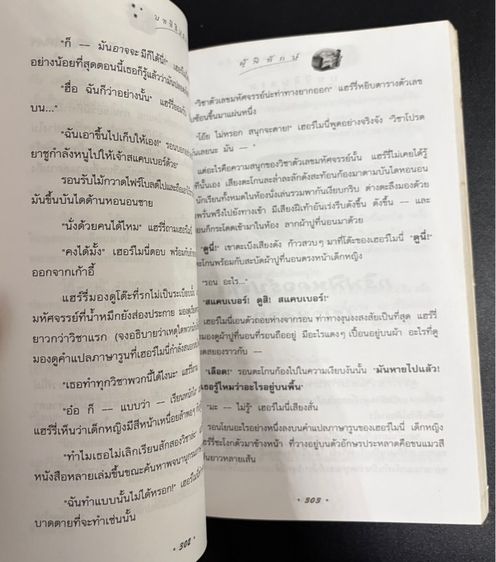 บทที่สิบ
"ก็ — มันอาจจะมีก็ได้นี่"
อย่างน้อยที่สุดตอนนี้เธอก็รู้แล้วว่า
"ฮื่อ ฉันก็ว่าอย่างนั้น" แฮร์รี่
บน..."
"ฉันเอาขึ้นไปเก็บให้เอง!" รอน
ยาชูกำลังหนูไปให้เจ้าสแคบเบอร์ด้วย"
รอนรับไม้กวาดไฟร์โบลต์ไป
มันขึ้นบันไดด้านหอนอนชาย
"นั่งด้วยคนได้ไหม" แฮร์รี่ถามเฮอร์ไมโอนี่
"คงได้มั้ง" เฮอร์ไมโอนี่ตอบ พร้อมกับ
ออกจากเก้าอี้
แฮร์รี่มองดูโต๊ะที่รกไม่เป็นระเบียบ
มหัศจรรย์ที่น้ำหมึกยังส่องประกาย
ยาวกว่าวิชาแรก (จงอธิบายว่าเหตุใด
มองดูคำแปลภาษารูนที่เฮอร์ไมโอนี่กำลัง
"เธอทำทุกวิชาพวกนี้ได้ไงนะ"
"อ๋อ ก็ — แบบว่า — เรียนหนัก
แฮร์รี่เห็นว่าเด็กหญิงมีสีหน้าเหนื่อยล้าพอๆ
"ทำไมเธอไม่เลิกเรียนสักสองวิชา
หนังสือหลายเล่มขึ้นขณะค้นหาพจนานุกรม
"ฉันทำแบบนั้นไม่ได้หรอก!"
บาดตายที่จะทำเช่นนั้น
• 302 •
ผู้พิทักษ์
"วิชาตัวเลขมหัศจรรย์น่ะท่าทางยากออก" แฮร์รี่หยิบตารางตัวเลข
ซับซ้อนขึ้นมาแผ่นหนึ่ง
"โอ๊ย ไม่หรอก สนุกจะตาย!" เฮอร์ไมโอนี่พูดอย่างจริงจัง "วิชาโปรด
ฉันเลยนะ มัน — "
แต่อะไรคือความสนุกของวิชาตัวเลขมหัศจรรย์นั้น แฮร์รี่ไม่เคยได้รู้
ที่นั้นเอง เสียงตะโกนสะล่ำละลักดังสะท้อนก้องมาตามบันไดหอนอน
นักเรียนทั้งหมดในห้องนั่งเล่นรวมพากันเงียบกริบ ต่างตะลึงมองด้วย
พรั่นพรึงไปยังทางเข้า มีเสียงฝีเท้าอันเร่งรีบดังขึ้น ดังขึ้น — และ
รอนก็กระโดดเข้ามาในห้อง ลากผ้าปูที่นอนมาด้วย
"ดูนี่!" เขาตะเบ็งเสียงดัง ก้าวสวบๆ มาที่โต๊ะของเฮอร์ไมโอนี่ "ดูนี่!"
ตะโกนพร้อมกับสะบัดผ้าปูที่นอนตรงหน้าเด็กหญิง
"รอน อะไร..."
"สแคบเบอร์! ดูสิ! สแคบเบอร์!"
เฮอร์ไมโอนี่เอนตัวถอยห่างจากรอน ท่าทางงุนงงสงสัยเป็นที่สุด แฮร์รี่
มองดูผ้าปูที่นอนที่รอนถืออยู่ มีอะไรแดงๆ เปื้อนอยู่บนผ้า อะไรที่ดู
สยองราวกับ —
"เลือด!" รอนตะโกนก้องไปในความเงียบงันนั้น "มันหายไปแล้ว!
รู้ไหมว่าอะไรอยู่บนพื้น"
"มะ — ไม่รู้" เฮอร์ไมโอนี่เสียงสั่น
รอนโยนอะไรอย่างหนึ่งลงบนคำแปลภาษารูนของเฮอร์ไมโอนี่ เด็กหญิง
แฮร์รี่ชะโงกตัวมาข้างหน้า ที่วางอยู่บนตัวอักษรประหลาดคือขนแมวสี
ยาวหลายเส้น
• 303 •